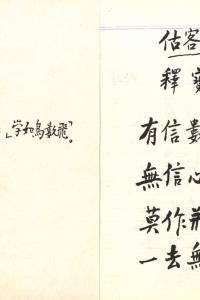 」学如鳥數飛」。
估客
釋寶
有信數
無信心
莫作
一去無